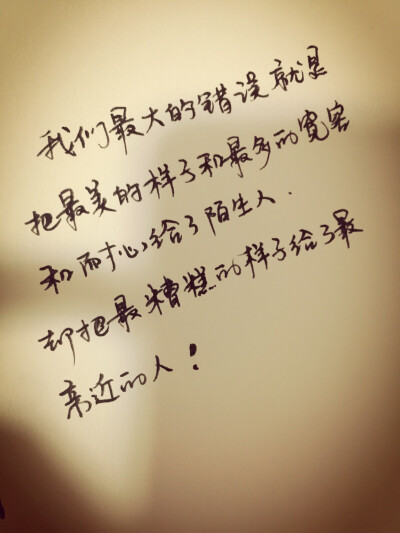 我们最大的错误就是
把最美的样子和最多的宽容
和耐心给了陌生人.
却把最糟糕的样子给了最
亲近的人!